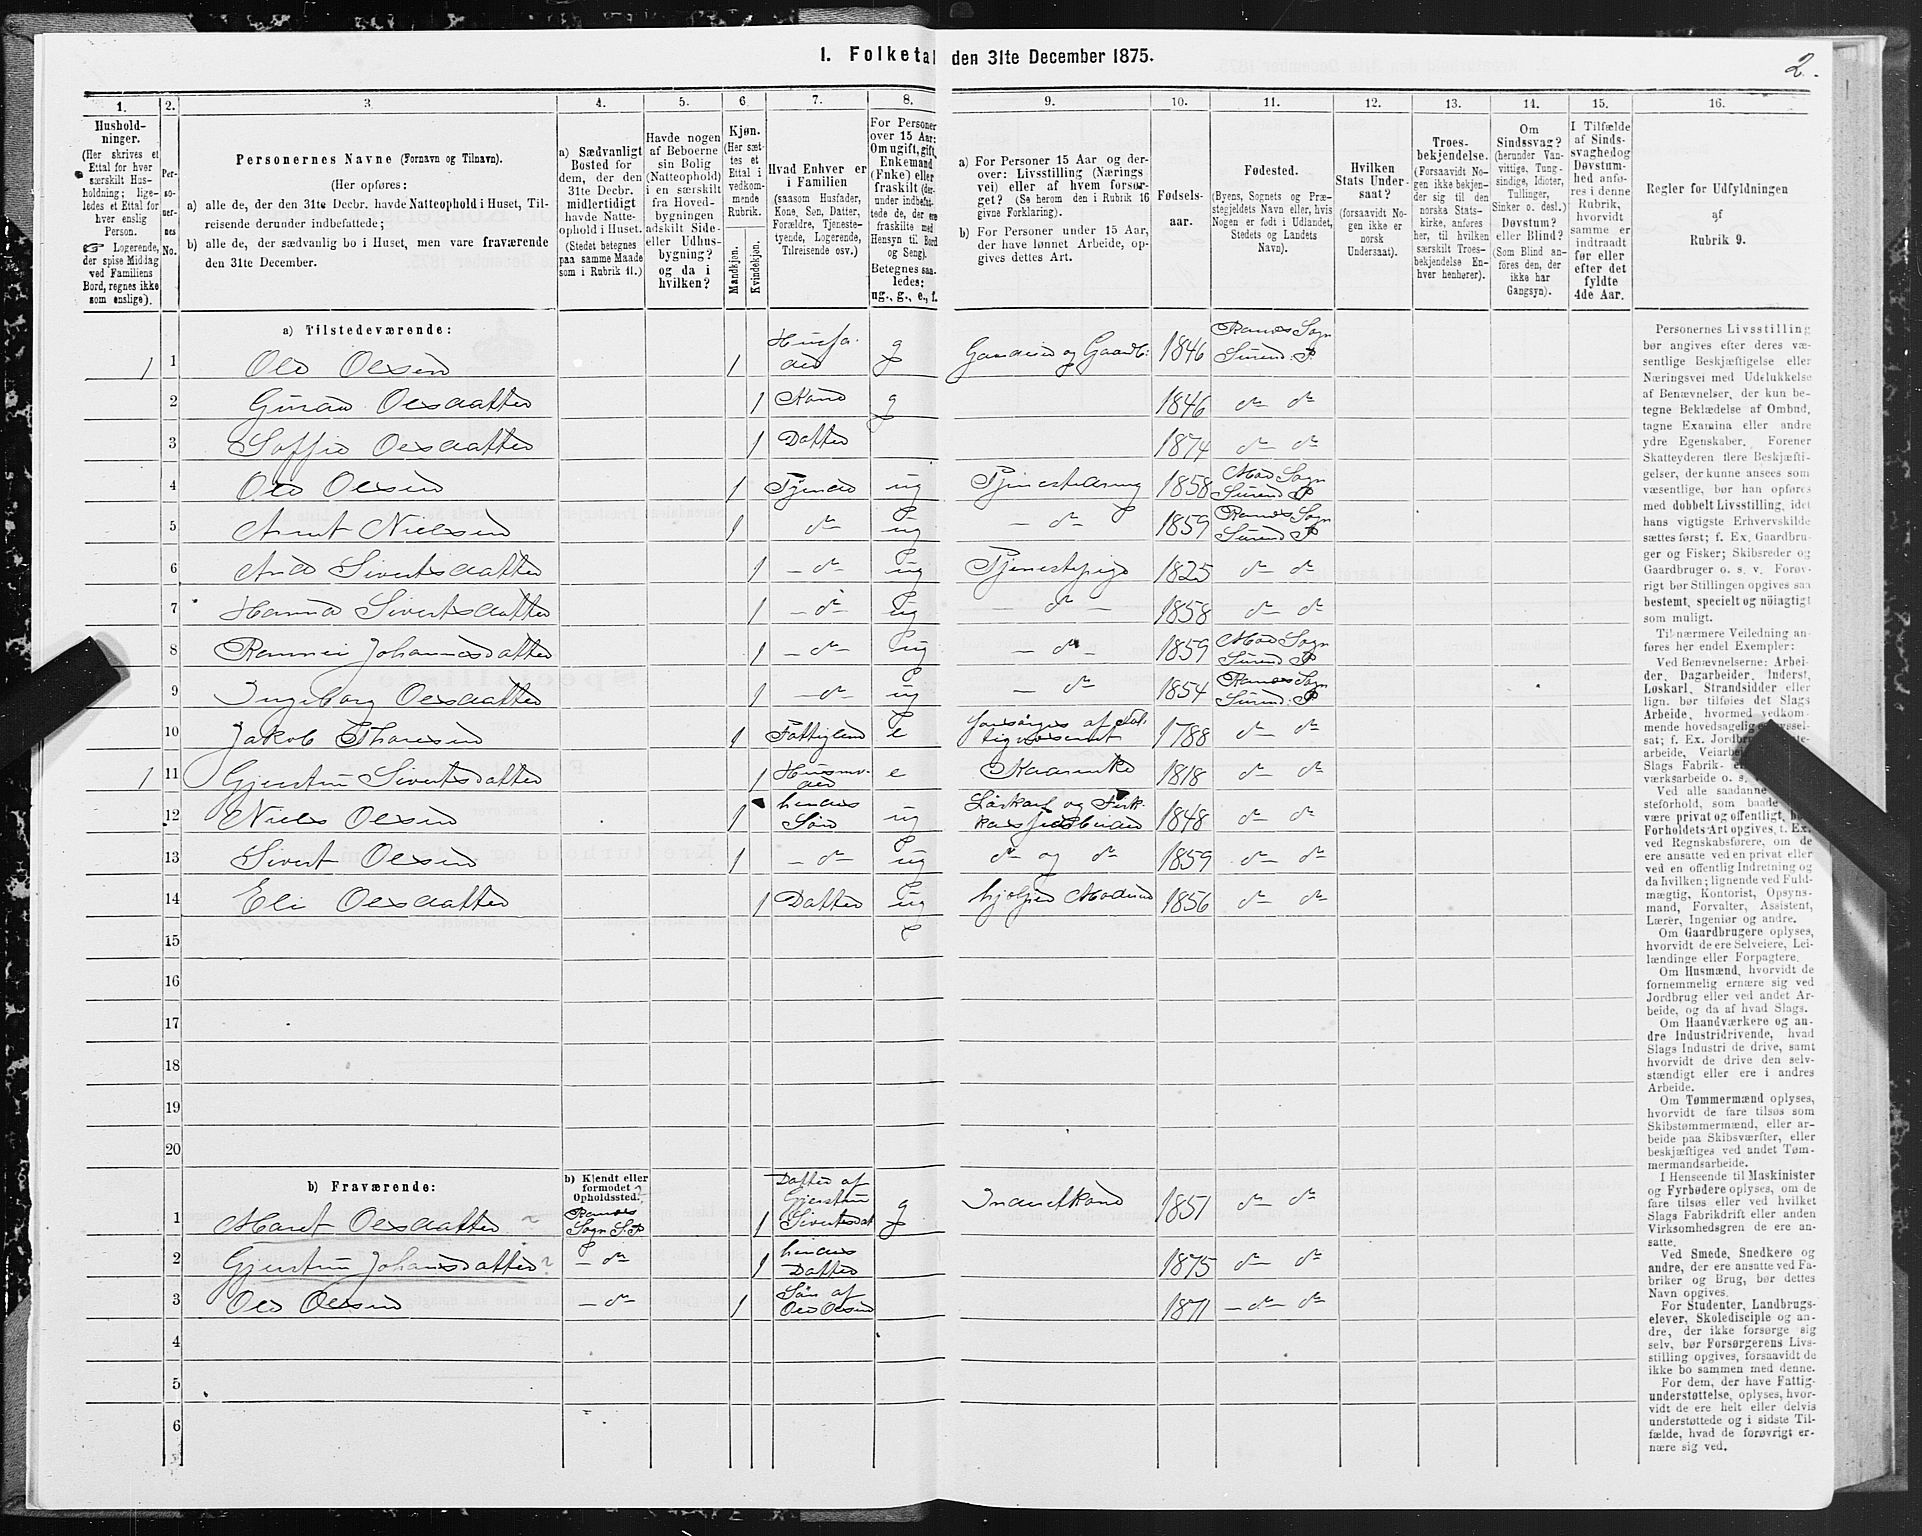 I. Folketal den 31te December 1875.
2.
1. 2. 3 4. 5. 6 7. 8. 9. 10. 11. 12. 13. 14. 15. 16.
Hushold-
ninger.
(Her skrives et
Ettal for hver
særskilt Hus-
holdning; lige-
ledes et Ettal for
hver enslig
Person.
☞ Logerende,
der spise Middag
ved Familiens
Bord, regnes ikke
som enslige).
Per-
so-
ner-
nes
No.
Personernes Navne (Fornavn og Tilnavn).
(Her opføres:
a) alle de, der den 31te Decbr. havde Natteophold i Huset, Til-
reisende derunder indbefattede;
b) alle de, der sædvanlig bo i Huset, men vare fraværende
den 31te December.
a) Sædvanligt
Bosted for
dem, der den
31te Decbr.
midlertidigt
havde Natte-
ophold i Huset.
(Stedet betegnes
paa samme Maade
som i Rubrik 11.)
Havde nogen
af Beboerne
sin Bolig
(Natteophold)
i en særskilt
fra Hoved-
bygningen
adskilt Side-
eller Udhus-
bygning?
og da i
hvilken?
Kjøn.
(Her sæt-
tes et
Ettal i
vedkom-
mende
Rubrik.
Mandkjøn.
Kvindekjøn.
Hvad Enhver er
i Familien
(saasom Husfader,
Kone, Søn, Datter,
Forældre, Tjeneste-
tyende, Logerende,
Tilreisende osv.)
For Personer
over 15 Aar:
Om ugift, gift,
Enkemand
(Enke) eller
fraskilt (der-
under indbefat-
tede de, der ere
fraskilte med
Hensyn til Bord
og Seng).
Betegnes saa-
ledes:
ug., g., e., f.
a) For Personer 15 Aar og der-
over: Livsstilling (Nærings
vei) eller af hvem forsør-
get? (Se herom den i Rubrik 16
givne Forklaring).
b) For Personer under 15 Aar,
der have lønnet Arbeide, op-
gives dettes Art.
Fødsels-
aar.
Fødested.
(Byens, Sognets og Præ-
stegjeldets Navn eller, hvis
Nogen er født i Udlandet,
Stedets og Landets
Navn).
Hvilken
Stats Under-
saat?
(forsaavidt No-
gen ikke er
norsk
Undersaat).
Troes-
bekjendelse.
(Forsaavidt No-
gen ikke bekjen-
der sig til den
norske Stats-
kirke, anføres
her, til hvilken
særskilt Troes-
bekjendelse En-
hver henhører).
Om
Sindssvag?
(herunder Van-
vittige, Tung-
sindige, Idioter,
Tullinger,
Sinker o. desl.)
Døvstum?
eller Blind?
(Som Blind an-
føres den, der
ikke har
Gangsyn).
I Tilfælde
af Sinds-
svaghed og
Døvstum-
hed anfø-
res i denne
Rubrik,
hvorvidt
samme er
indtraadt
før eller
efter det
fyldte
4de Aar.
Regler for Udfyldningen
af
Rubrik 9.
a) Tilstedeværende:
1 1 Ole Olsen 1 Husfader g Gaardbr: 1846 Ranæs Sogn Surend. P
2 Olsdatter 1 Kone g 1846 do do
3 Soffie Olsdatter 1 Datter 1874 do do
4 Ole Olsen 1 Tjener ug Tjenestedreng 1858 Moe Sogn Surend P
5 Arnt Nielsen 1 do ug - do 1859 Ranæs Sogn Surend P
6 Ane Sivertsdatter 1 - do ug Tjenestepige 1825 do do
7 Hanna Sivertsdatter 1 - do ug - do - 1858 do do
8 Johannesdatter 1 - do - ug - do - 1859 Moe Sogn Surend P
9 Ingeborg Olsdatter 1 - do - ug - do 1854 Ranæs Sogn Surend. P
10 Jakob Thoresen 1 Fattiglem e forsørges af Fattigvæsenet 1788 do do
1 11 Gjertru Sivertsdatter 1 Husmoder e Kaarenke 1818 do do
12 Niels Olsen 1 hendes Søn ug Løskarl og 1848 do do
13 Sivert Olsen 1 - do - ug do og do 1859 do do
14 Eli Olsdatter 1 Datter ug hjelper Moderen 1856 do do
15
16
17
18
19
20
b) Fraværende:
b) Kjendt eller
formodet
Opholdssted.
1 Maret Olsdatter Ranæs Sogn S. P 1 Datter af Gjertru Sivertsdat g Inderstkone 1851 do do
2 Gjertru Johansdatter ? - do 1 hendes Datter 1875 do do
3 Ole Olsen - do 1 Søn af Ole Olsen 1871 - do do
4
5
6
Personernes Livsstilling
bør angives efter deres væ-
sentlige Beskjæftigelse eller
Næringsvei med Udelukkelse
af Benævnelser, der kun be-
tegne Beklædelse af Ombud,
tagne Examina eller andre
ydre Egenskaber. Forener
Skatteyderen flere Beskjæfti-
gelser, der kunne ansees som
væsentlige, bør han opføres
med dobbelt Livsstilling, idet
hans vigtigste Erhvervskilde
sættes først; f. Ex. Gaardbru-
ger og Fisker; Skibsreder og
Gaardbruger o. s. v. Forøv-
rigt bør Stillingen opgives saa
bestemt, specielt og nøiagtigt
som muligt.
Til nærmere Veiledning an-
føres her endel Exempler:
Ved Benævnelserne: Arbei-
der, Dagarbeider, Inderst,
Løskarl, Strandsidder eller
lign. bør tilføies det Slags
Arbeide, hvormed vedkom-
mende hovedsagelig
sat; f. Ex.
arbeide,
Slags Fabrik-
værksarbeide o. s.
Ved alle saadanne
steforhold, som baade
være privat og offentligt,
Forholdets Art opgives, t. Ex.
ved Regnskabsførere, om de
ere ansatte ved en privat eller
ved en offentlig Indretning og
da hvilken; lignende ved Fuld-
mægtig, Kontorist, Opsyns-
mand, Forvalter, Assistent,
Lærer, Ingeniør og andre.
Om Gaardbrugere oplyses,
hvorvidt de ere Selveiere, Lei-
lændinge eller Forpagtere.
Om Husmænd, hvorvidt de
fornemmelig ernære sig ved
Jordbrug eller ved andet Ar-
beide, og da af hvad Slags.
Om Haandværkere og an-
dre Industridrivende, hvad
Slags Industri de drive, samt
hvorvidt de drive den selv-
stændigt eller ere i andres
Arbeide.
Om Tømmermænd oplyses,
hvorvidt de fare tilsøs som
Skibstømmermænd, eller ar-
beide paa Skibsværfter, eller
beskjæftiges ved andet Tøm-
mermandsarbeide.
I Henseende til Maskinister
og Fyrbødere oplyses, om de
fare tilsøs eller ved hvilket
Slags Fabrikdrift eller anden
Virksomhedsgren de ere an-
satte.
Ved Smede, Snedkere og
andre, der ere ansatte ved Fa-
briker og Brug, bør dettes
Navn opgives.
For Studenter, Landbrugs-
elever, Skoledisciple og an-
dre, der ikke forsørge sig
selv, bør Forsørgerens Livs-
stilling opgives, forsaavidt de
ikke bo sammen med denne.
For dem, der have Fattig-
understøttelse, oplyses, hvor-
vidt de ere helt eller delvis
understøttede og i sidste Til-
fælde, hvad de forøvrigt er-
nære sig ved.